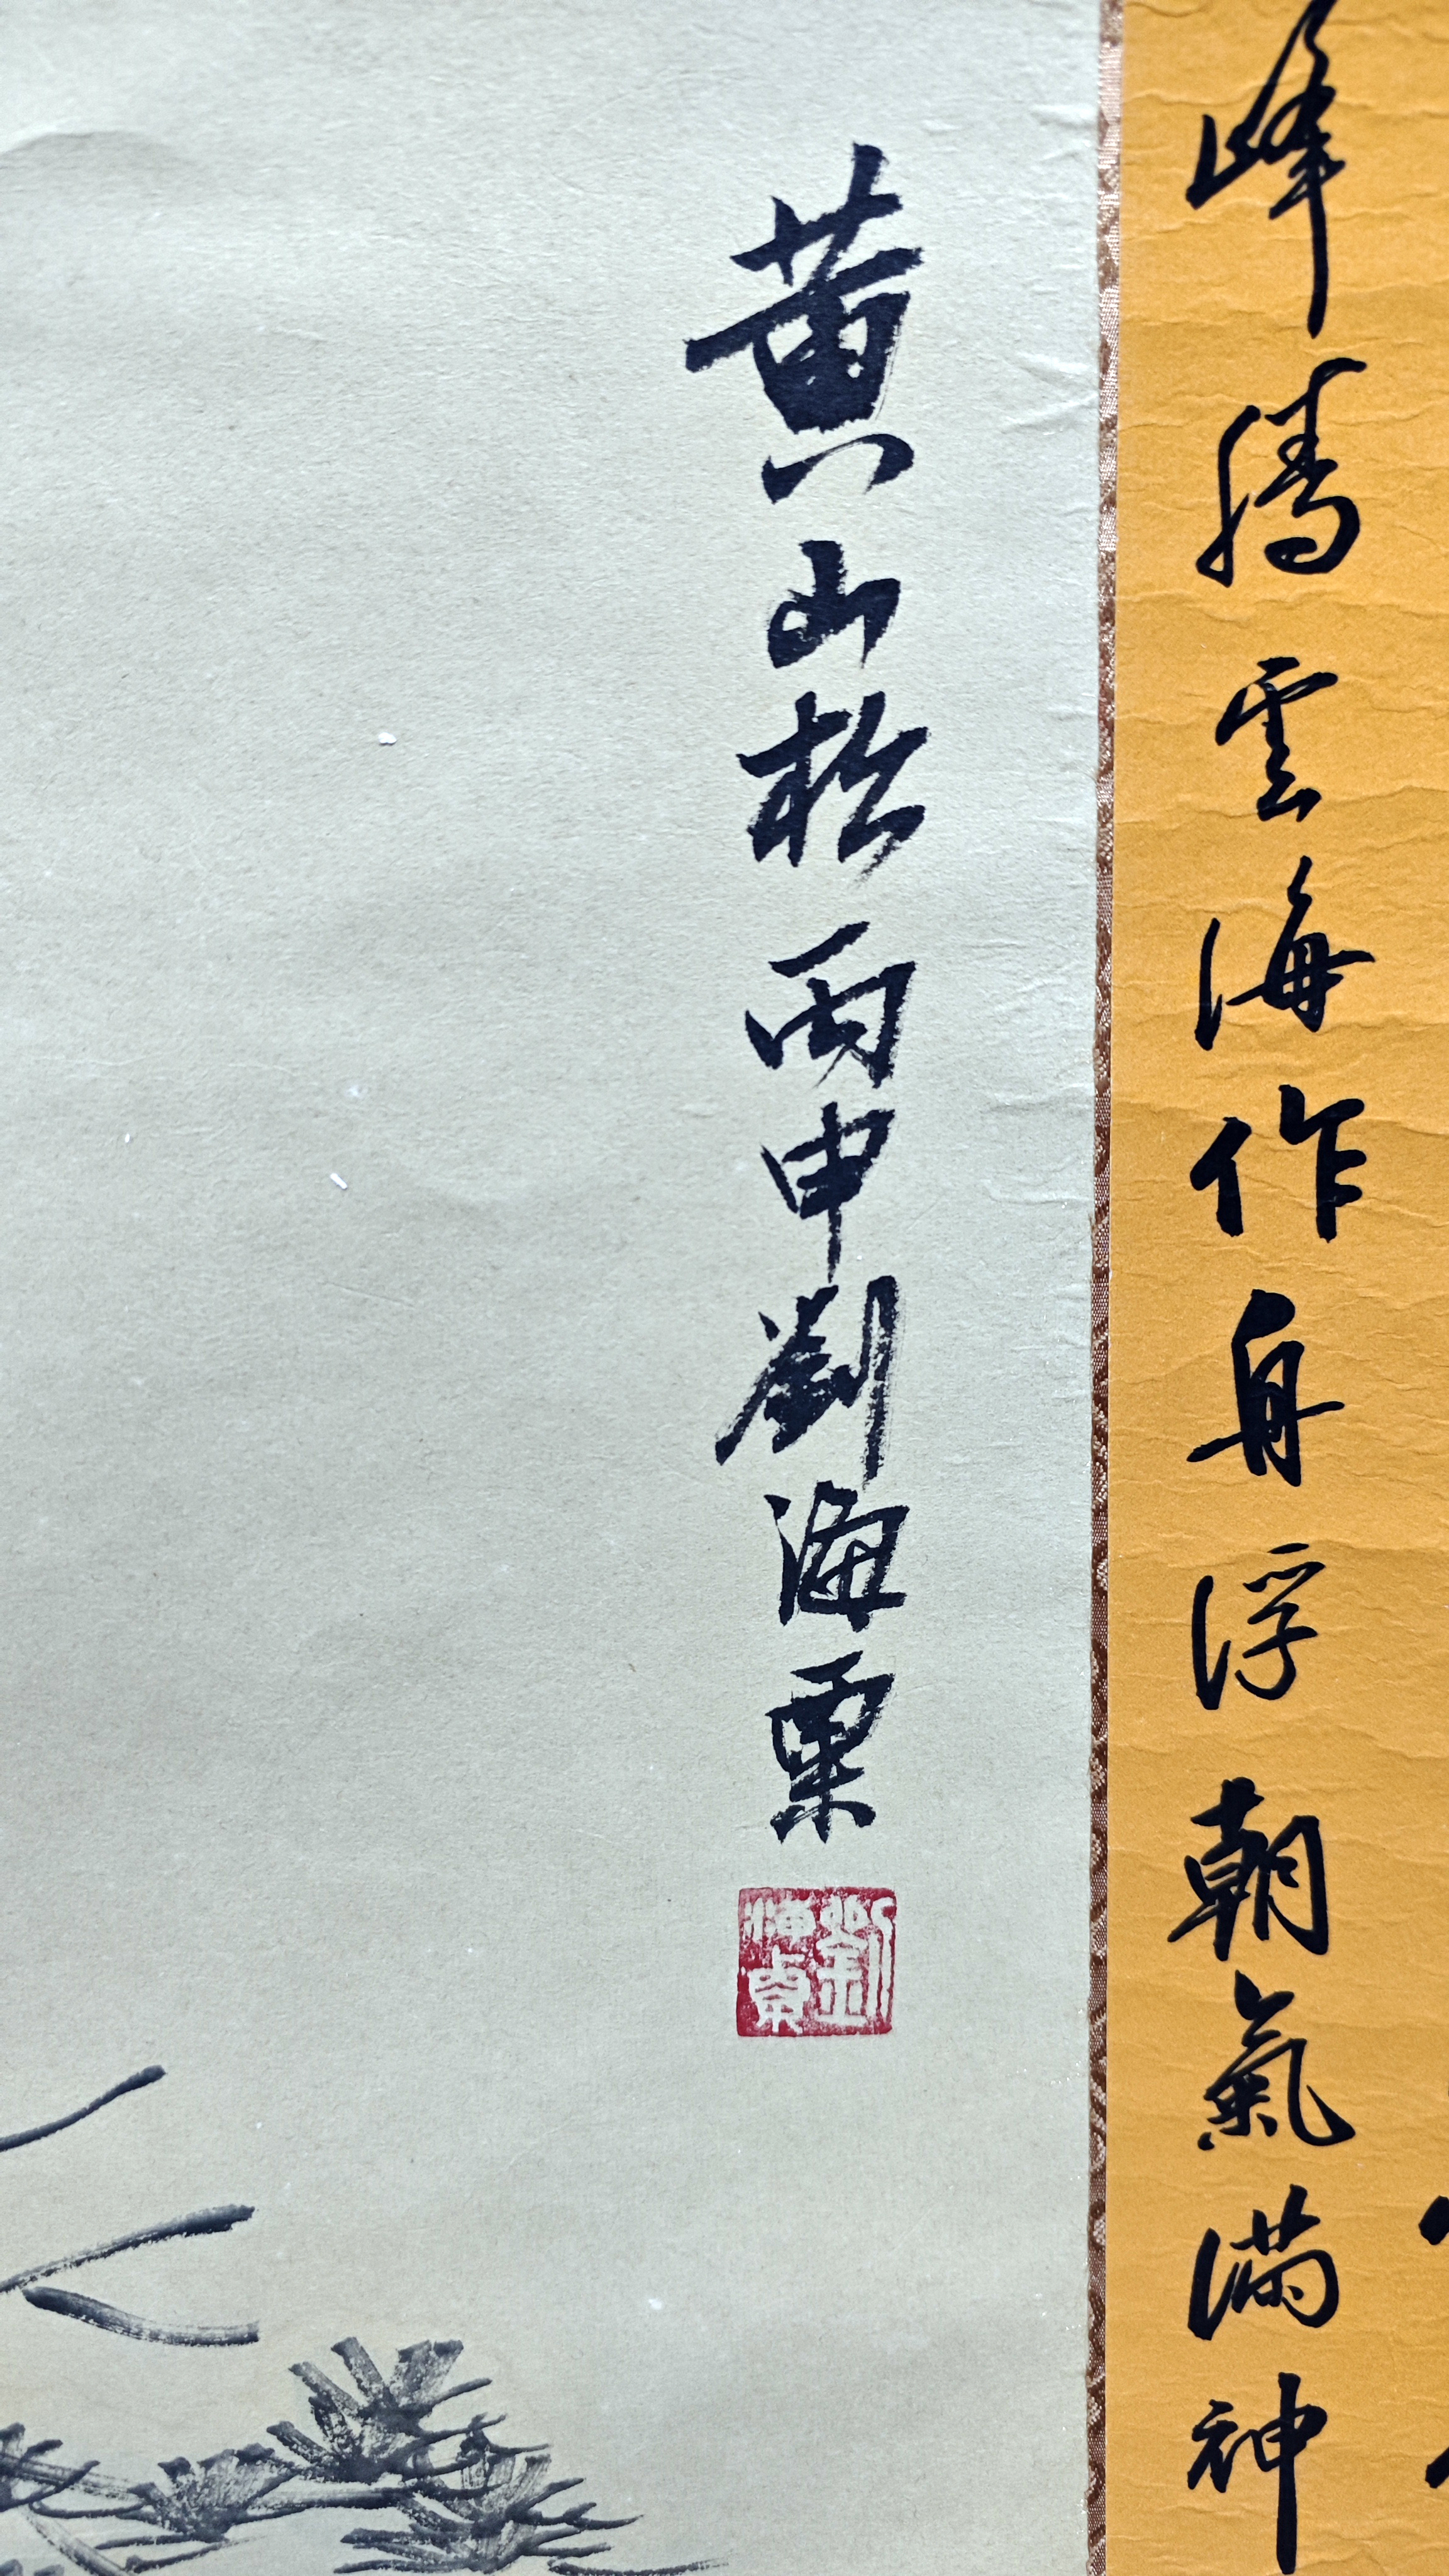 峰騰雲海作舟浮朝氣滿神
黃山松丙申劉海粟
劉海粟